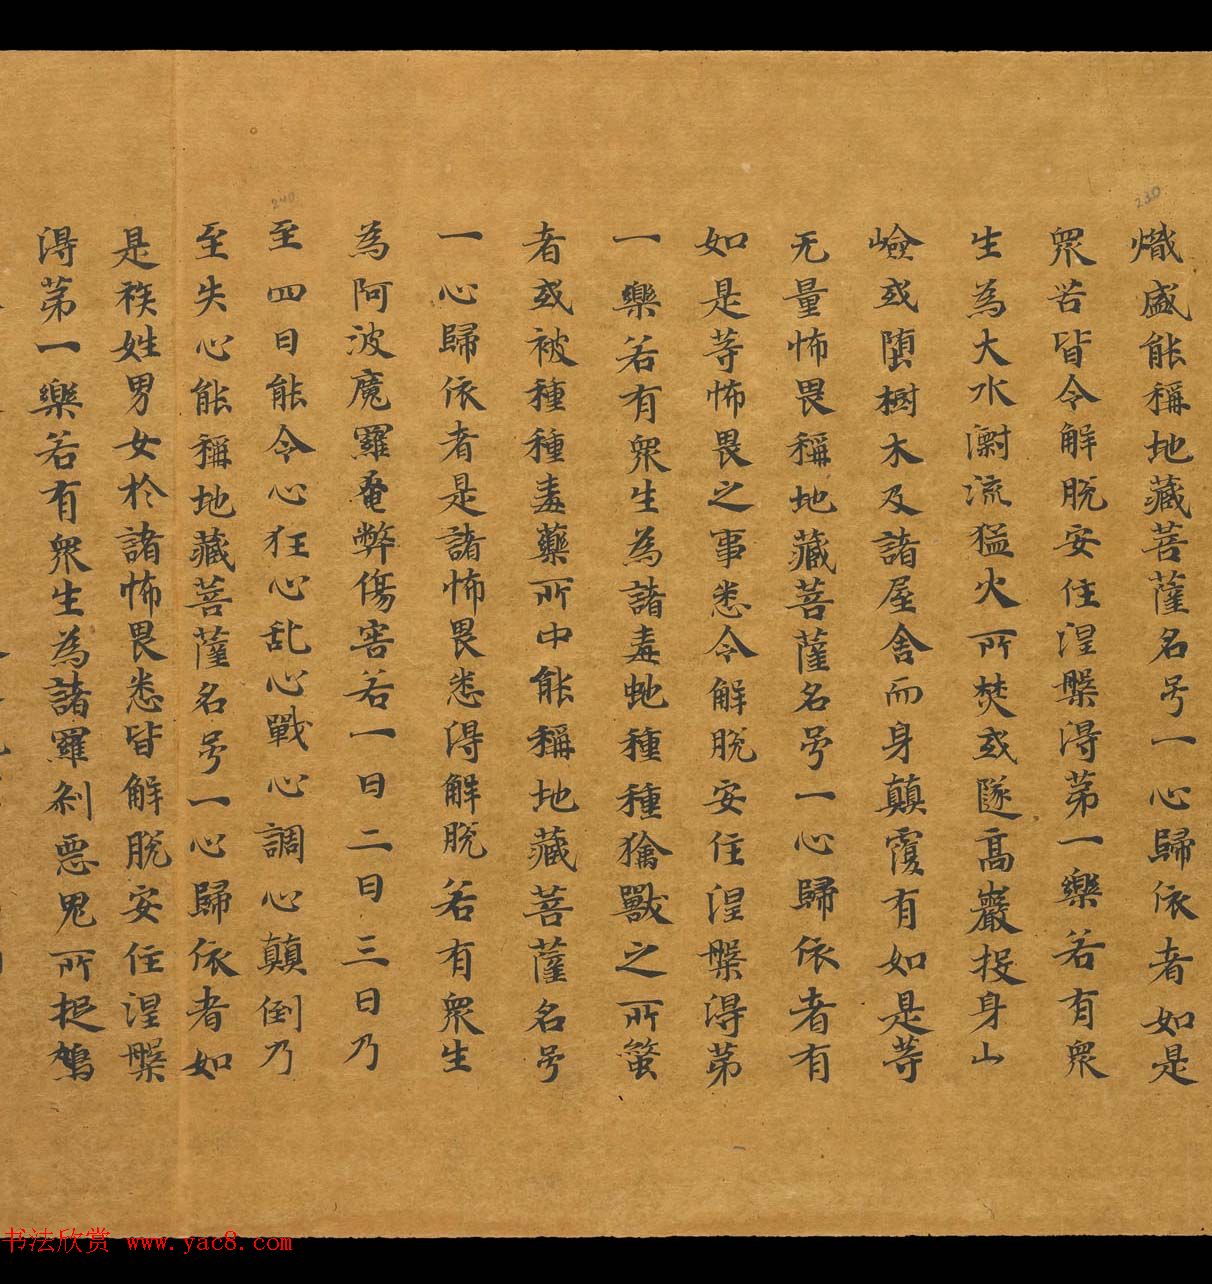 熾盛能稱地藏菩薩名号一心歸依者如是
衆苦皆令解脫安住涅槃得第一樂若有衆
生為大水漂流猛火所焚或墜高巖投身山
嶮或堕樹木及諸屋舍而身顛覆有如是等
无量怖畏稱地藏菩薩名号一心歸依者有
如是等怖畏之事悉令解脫安住涅槃得第
一樂若有衆生為諸毒虵種種獦獸之所螫
者或被種種毒藥所中能稱地藏菩薩名号
一心歸依者是諸怖畏悉得解脫若有衆生
為阿波魔羅奄弊傷害若一日二日三日乃
至四日能令心狂心乱心戰心調心顛倒乃
至失心能稱地藏菩薩名号一心歸依者如
是族姓男女於諸怖畏悉皆解脫安住涅槃
得第一樂若有衆生為諸羅刹惡鬼所捉
230
240
书法欣赏 www.yac8.com